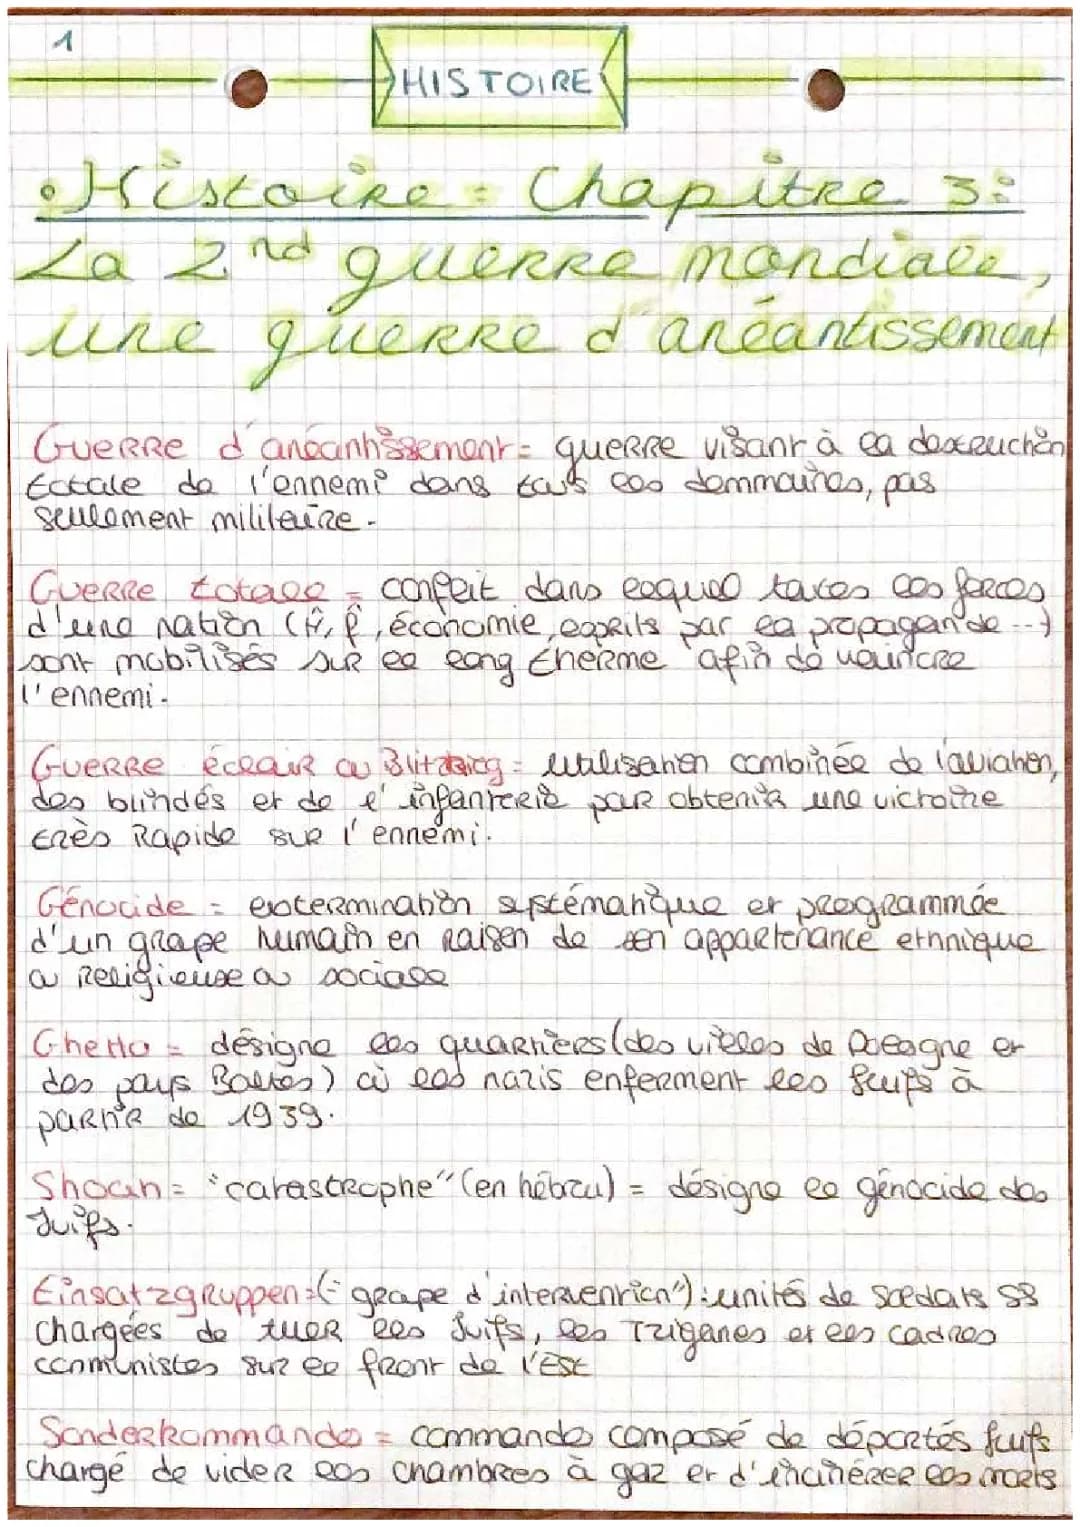 1
HISTOIRE
• Histoire = Chapitre 3:
La 2nd guerre mondiale,
une guerre d'anéantissement
Guerre d'anéantissement = guerre visant à la destruction
totale de l'ennemi dans tous les dommaines, pas
seulement militaire.
Guerre totale = conflit dans lequel toutes les forces
d'une nation (H, f, économie, esprits par la propagande...)
sont mobilisés sur le long therme afin de vaincre
l'ennemi.
Guerre éclair ou = utilisation combinée de l'aviation,
des blindés et de l'infanterie pour obtenir une victoire
très rapide sur l'ennemi.
Génocide = extermination systématique et programmée
d'un groupe humain en raison de son appartenance ethnique
ou religieuse ou sociale
Ghetto = désigne les quartiers (des villes de Pologne et
des pays Baltes) où les nazis enferment les juifs à
partir de 1939.
Shoah = "catastrophe" (en hébreu) = désigne le génocide des
Juifs.
Einsatzgruppen = (= groupe d'intervention") : unités de soldats SS
chargées de tuer les Juifs, les Tziganes et les cadres
communistes sur le front de l'Est
Sonderkommando = commando composé de déportés juifs
chargé de vider les chambres à gaz et d'incinérer les morts